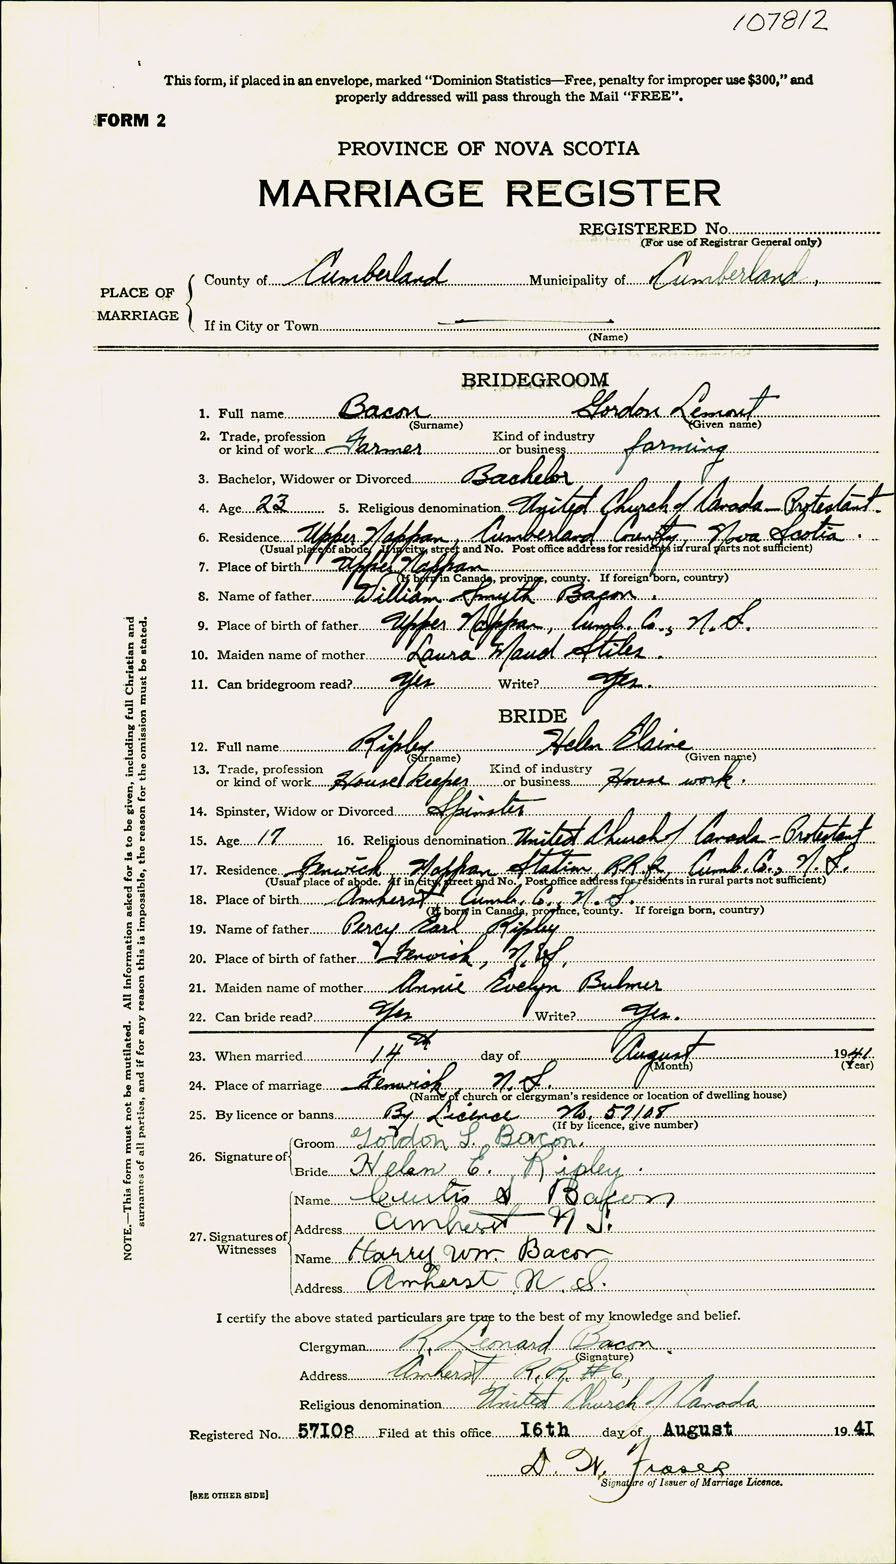 107812
This form, if placed in an envelope, marked "Dominion Statistics—Free, penalty for improper use $300," and
properly addressed will pass through the Mail "FREE".
FORM 2
PROVINCE OF NOVA SCOTIA
MARRIAGE REGISTER
REGISTERED No.
(For use of Registrar General only)
PLACE OF MARRIAGE
County of Cumberland Municipality of Cumberland,
If in City or Town
(Name)
BRIDEGROOM
1. Full name Bacon Gordon Lemont
(Surname) (Given name)
2. Trade, profession or kind of work Farmer Kind of industry or business farming
3. Bachelor, Widower or Divorced Bachelor
4. Age 23 5. Religious denomination United Church of Canada - Protestant.
6. Residence Upper Nappan, Cumberland County, Nova Scotia.
(Usual place of abode. If in city, street and No. Post office address for residents in rural parts not sufficient)
7. Place of birth Upper Nappan
(If born in Canada, province, county. If foreign born, country)
8. Name of father William Smyth Bacon.
9. Place of birth of father Upper Nappan, Cumb. Co., N.S.
10. Maiden name of mother Laura Maud Stiles.
11. Can bridegroom read? Yes Write? Yes.
BRIDE
12. Full name Ripley Helen Elaine
(Surname) (Given name)
13. Trade, profession or kind of work Housekeeper Kind of industry or business House work.
14. Spinster, Widow or Divorced Spinster
15. Age 17 16. Religious denomination United Church of Canada - Protestant
17. Residence Fenwick Nappan Station, R.R.2, Cumb. Co., N.S.
(Usual place of abode. If in city, street and No. Post office address for residents in rural parts not sufficient)
18. Place of birth Amherst Cumb. Co., N.S.
(If born in Canada, province, county. If foreign born, country)
19. Name of father Percy Earl Ripley
20. Place of birth of father Fenwick, N.S.
21. Maiden name of mother Annie Evelyn Bulmer
22. Can bride read? Yes Write? Yes.
23. When married 14th day of August 1941
(Month) (Year)
24. Place of marriage Fenwick, N.S.
(Name of church or clergyman's residence or location of dwelling house)
25. By licence or banns By Licence No. 57108
(If by licence, give number)
26. Signature of
Groom Gordon L. Bacon.
Bride Helen E. Ripley.
27. Signatures of Witnesses
Name Curtis S Bacon
Address Amherst N.S.
Name Harry Wm. Bacon
Address Amherst N.S.
I certify the above stated particulars are true to the best of my knowledge and belief.
Clergyman R. Leonard Bacon.
(Signature)
Address Amherst R.R.#6,
Religious denomination United Church of Canada
Registered No. 57108 Filed at this office 16th day of August 1941
D. W. Fraser
Signature of Issuer of Marriage Licence.
[SEE OTHER SIDE]
NOTE.—This form must not be mutilated. All information asked for is to be given, including full Christian and
surnames of all parties, and if for any reason this is impossible, the reason for the omission must be stated.